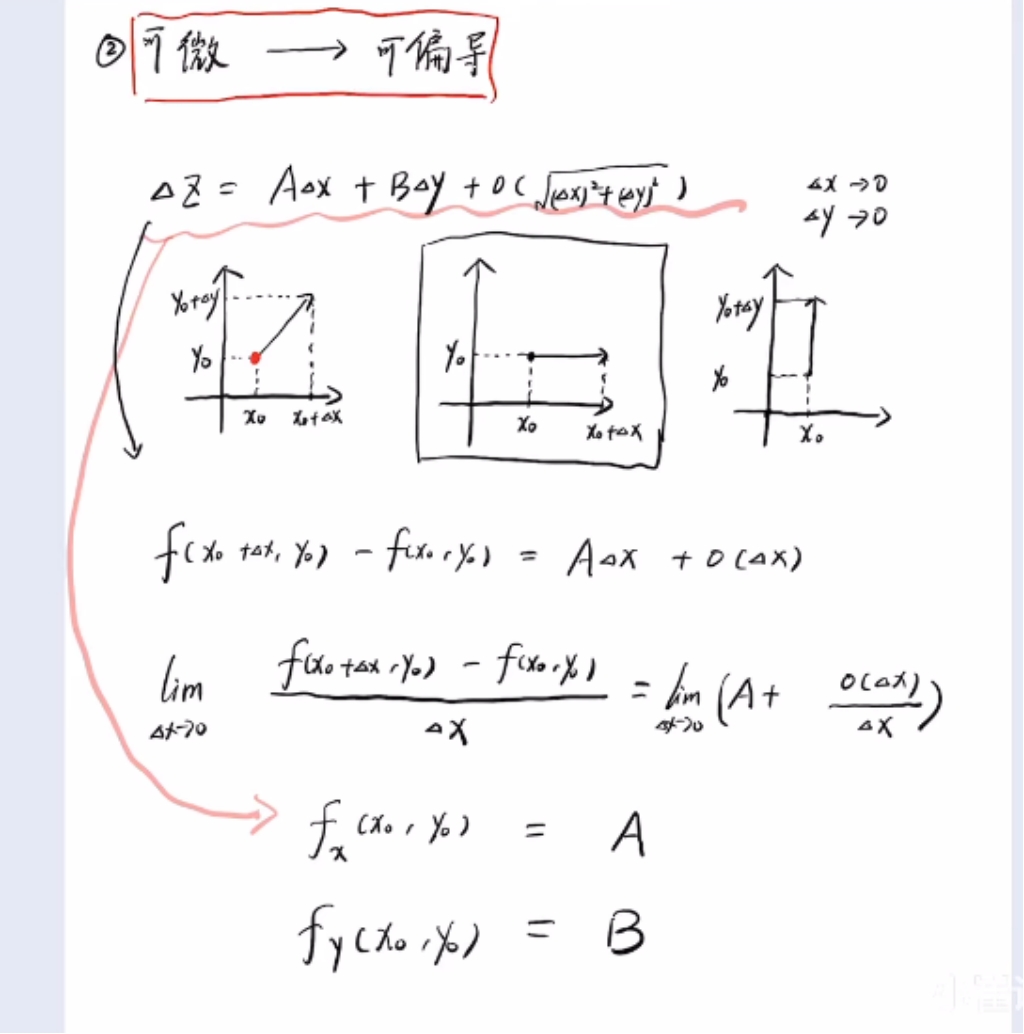 ② 可微 → 可偏导
Δz = AΔx + BΔy + o(√(Δx)²+(Δy)²)
Δx→0
Δy→0
y₀+Δy
y₀
x₀ x₀+Δx
y₀
x₀ x₀+Δx
y₀+Δy
y₀
x₀
f(x₀+Δx, y₀) - f(x₀, y₀) = AΔx + o(Δx)
lim Δx→0 f(x₀+Δx, y₀) - f(x₀, y₀) / Δx = lim Δx→0 (A + o(Δx) / Δx)
fₓ(x₀, y₀) = A
fy(x₀, y₀) = B